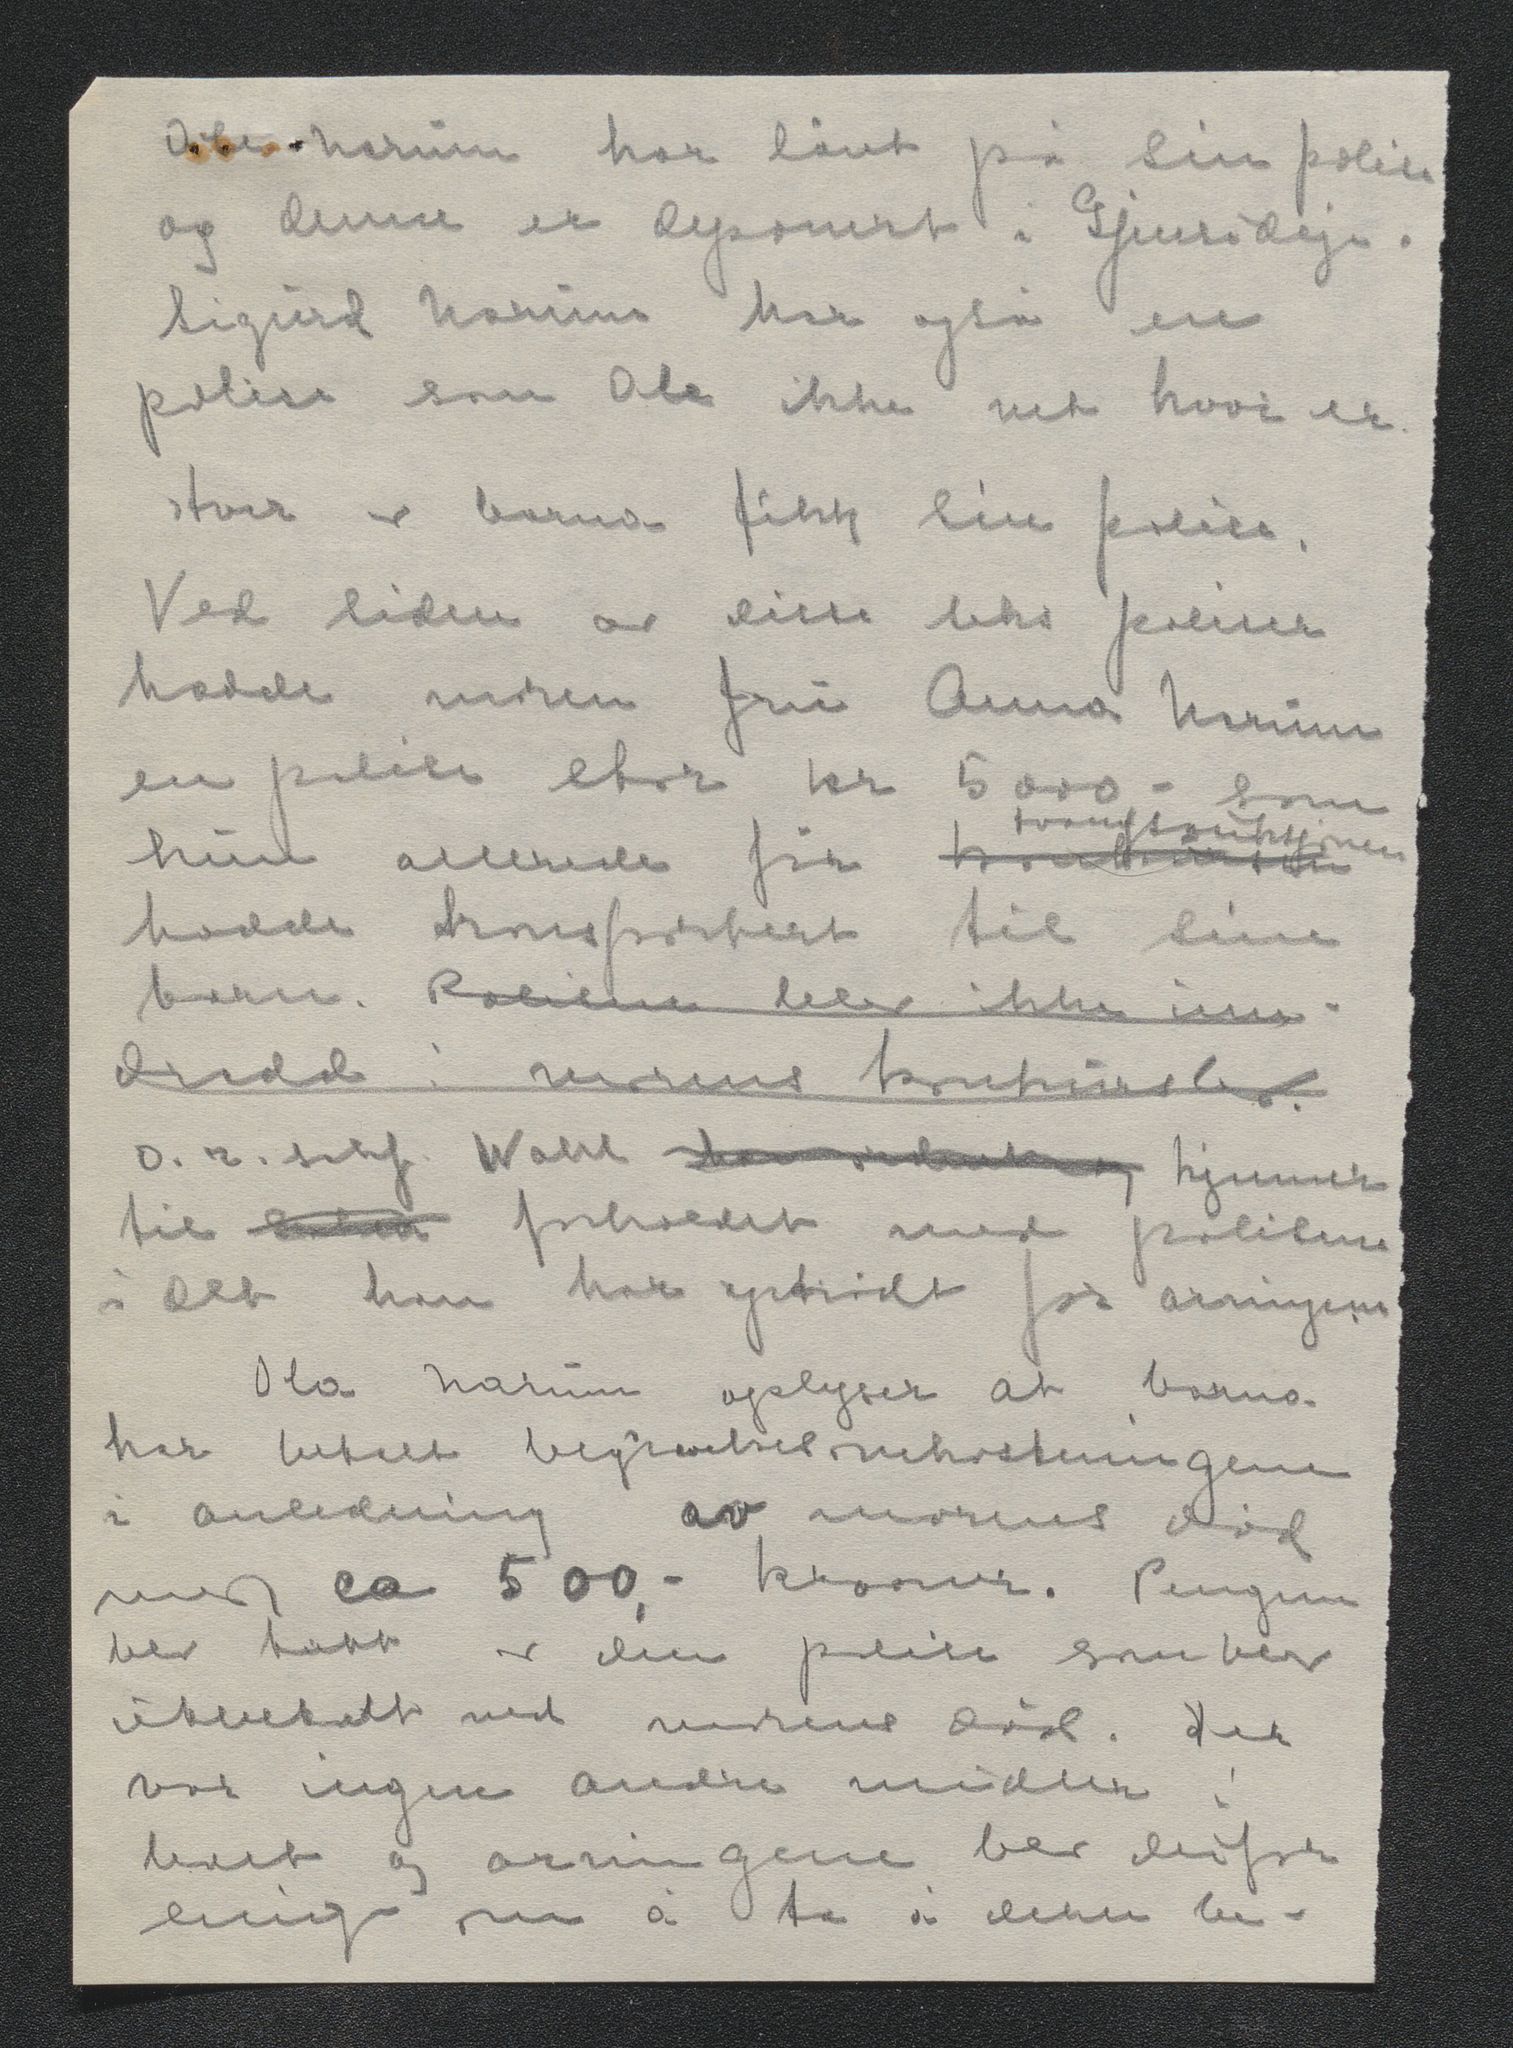 Ole Narum har lånt på sin polise
og denne er deponert i
Sigurd Narum har også en
polise som Ole ikke vet hvor er.
Hver av barna fikk sin polise.
Ved siden av disse seks poliser
hadde moren fru Anna Narum
en polise stor kr 5000,- som
tvangsauksjonen
hun allerede før konkursen
hadde transportert til sine
barn. Polisene blev ikke inn-
dradd i morens konkursbo.
o.r.sakf. Wahl kjenner
til forholdet med polisene
i det han har optrådt for arvingene
Ola Narum oplyser at barna
har betalt begravelsesomkostningene
i anledning av morens død
med ca 500,- kroner. Pengene
blev tatt av den polise som blev
utbetalt ved morens død. Der
var ingen andre midler i
boet og arvingene blev derfor
enig om å ta av dette be-